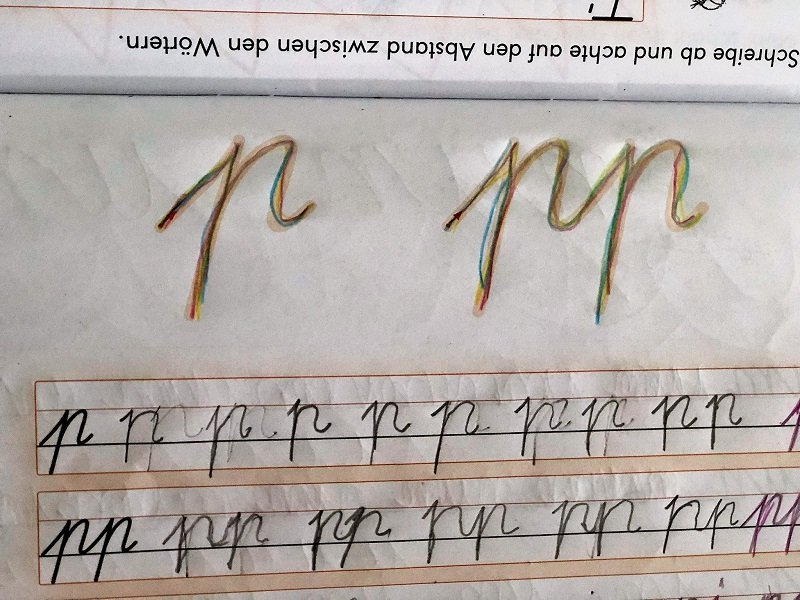 Schreibe ab und achte auf den Abstand zwischen den Wörtern.
p pp
p p p p p p p p p p
pp pp pp pp pp pp pp